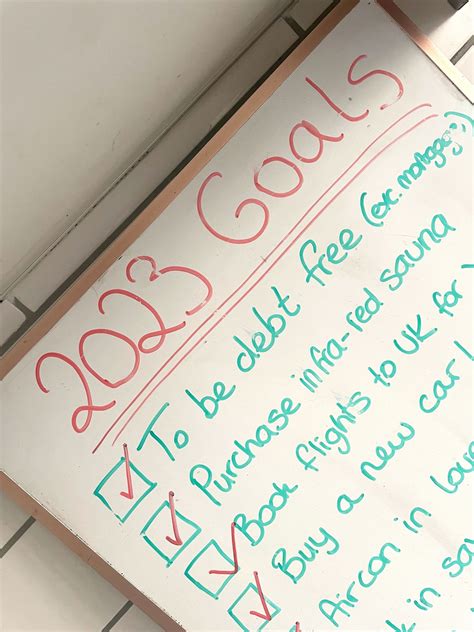 2023 Goals
To be debt free (exc. mortgage :)
Purchase infra-red sauna
Book flights to UK for
Buy a new car!
Aircon in
in